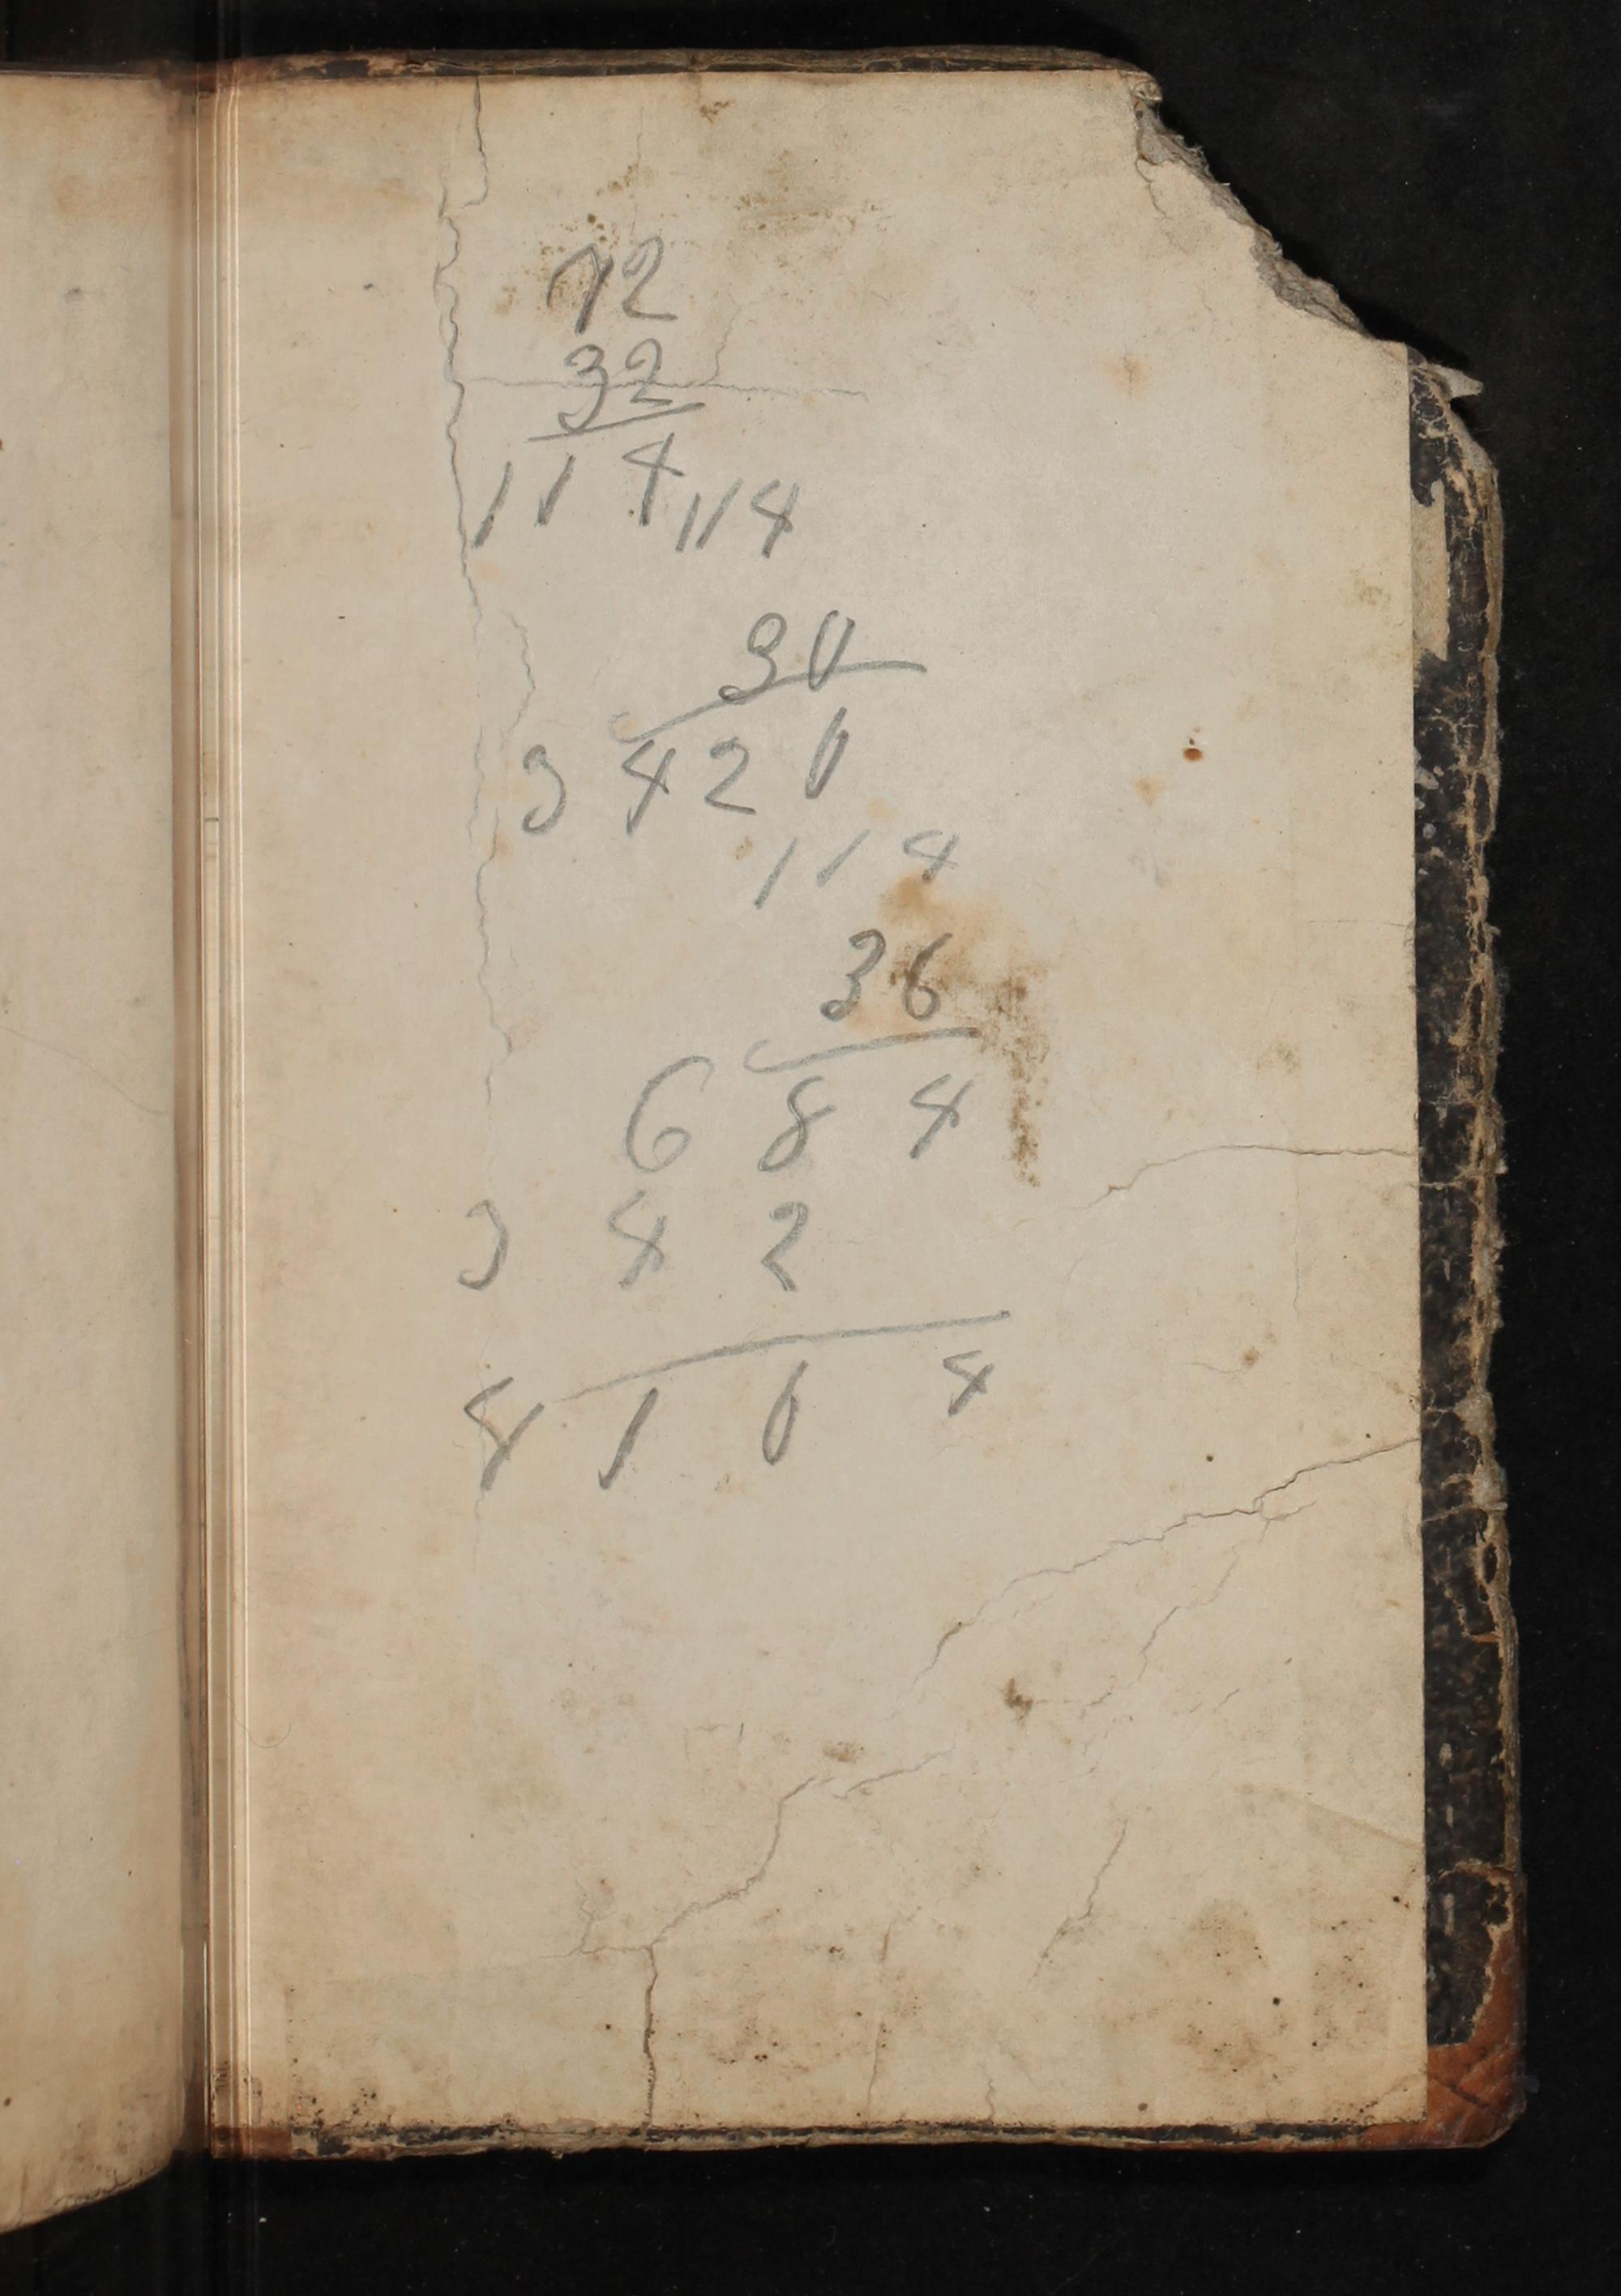 72
32
114
114
30
3420
114
36
684
342
4104